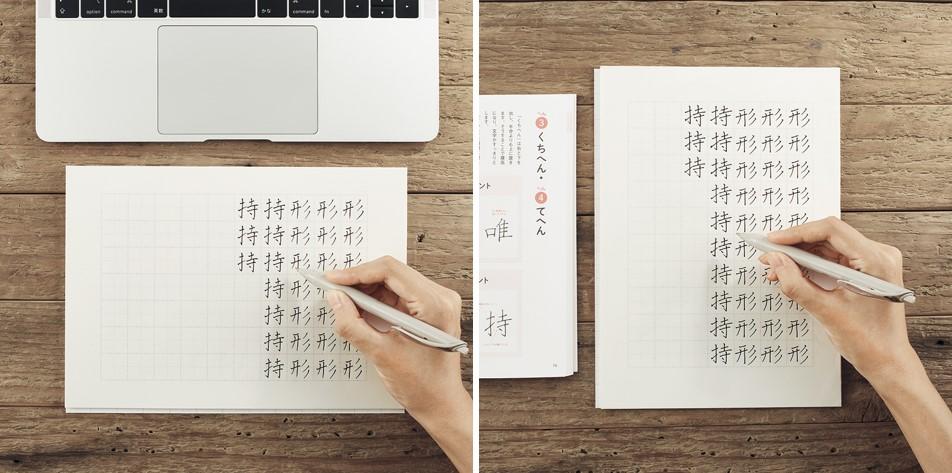 option
command
英数
かな
command
fn
形形形形形形
形形形形形形形
形形形形形形形
持持持持持持持
持持持
3 くちへん・ 4 てへん
ント
唯
ント
持
形形形形形形形形形
形形形形形形形形形形
形形形形形形形形形形
持持持持持持持持持持
持持持